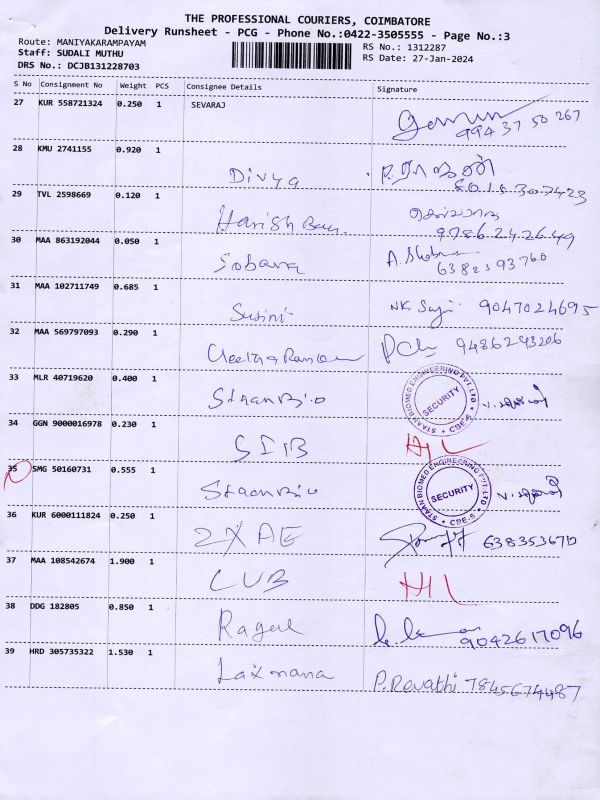 THE PROFESSIONAL COURIERS, COIMBATORE
Delivery Runsheet - PCG - Phone No.:0422-3505555 - Page No.:3
Route: MANIYAKARAMPAYAM
RS No.: 1312287
Staff: SUDALI MUTHU
RS Date: 27-Jan-2024
DRS No.: DCJB131228703
S No Consignment No Weight PCS Consignee Details Signature
27 KUR 558721324 0.250 1 SEVARAJ
99437 50 267
28 KMU 2741155 0.920 1
Divya
8015307423
29 TVL 2598669 0.120 1
Harish
9786242649
30 MAA 863192044 0.050 1
Sobana A. Shobana
6382393760
31 MAA 102711749 0.685 1
Susini 9047024695
32 MAA 569797093 0.290 1
9486293206
33 MLR 40719620 0.400 1
StaanBio STAAN BIOMED ENGINEERING PVT LTD CBE-5 SECURITY
34 GGN 9000016978 0.230 1
SIB
35 SMG 50160731 0.555 1
StaanBio STAAN BIOMED ENGINEERING PVT LTD CBE-5 SECURITY
36 KUR 6000111824 0.250 1
2XAE
37 MAA 108542674 1.900 1
CUB
38 DDG 182805 0.850 1
9042617096
39 HRD 305735322 1.530 1
Laxmana P. Revathi 7845674487